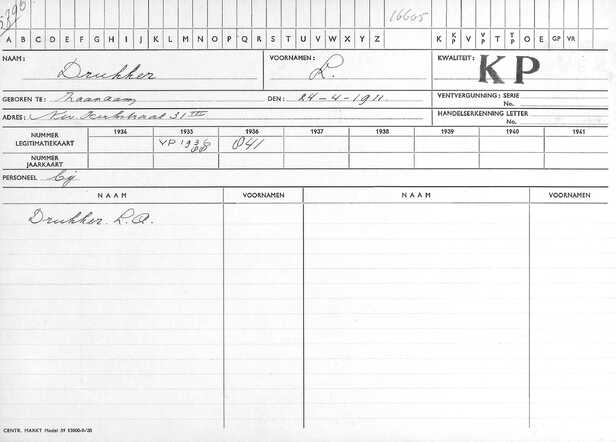 5396
16605
A B C D E F G H I J K L M N O P Q R S T U V W X Y Z K K/P V V/P T T/P O E GP VR
NAAM: Drukker VOORNAMEN: L. KWALITEIT: KP
GEBOREN TE: Zaandam DEN: 24-4-1911. VENTVERGUNNING: SERIE
No.
ADRES: Nw. Kerkstraat 31 III HANDELSERKENNING LETTER
No.
NUMMER LEGITIMATIEKAART 1936 1935 1936 1937 1938 1939 1940 1941
VP 1936 841
NUMMER JAARKAART
PERSONEEL
NAAM VOORNAMEN NAAM VOORNAMEN
Drukker. L.A.
CENTR. MARKT Model 39 12000-9/35